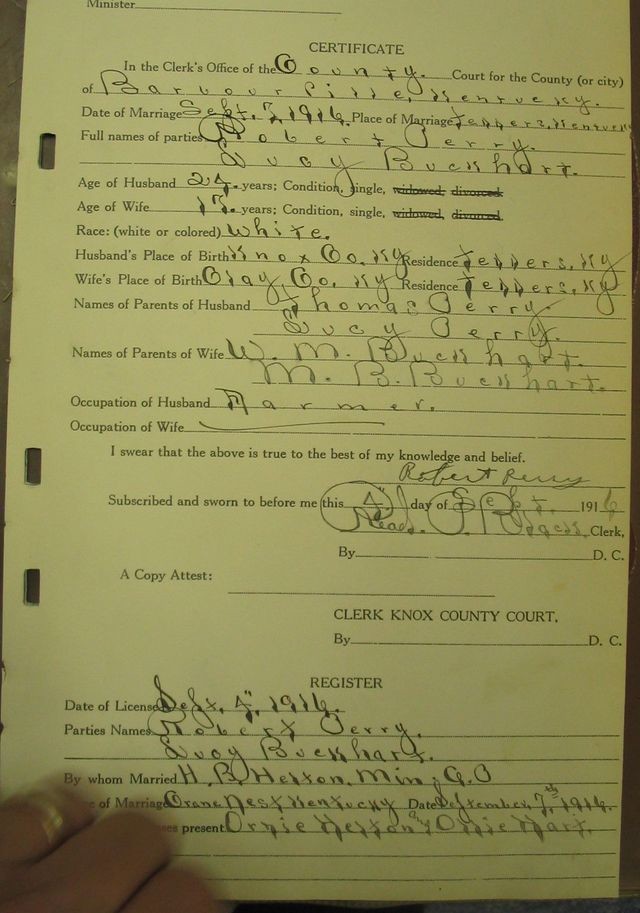 Minister
CERTIFICATE
In the Clerk's Office of the County. Court for the County (or city)
of Barbourville, Kentucky.
Date of Marriage Sept. 7, 1916. Place of Marriage Kentucky
Full names of parties Robert Perry.
Lucy Buckhart.
Age of Husband 24. years; Condition, single, widowed, divorced
Age of Wife 17. years; Condition, single, widowed, divorced
Race: (white or colored) White.
Husband's Place of Birth Knox Co. Ky Residence Ky
Wife's Place of Birth Clay, Co. Ky Residence Ky
Names of Parents of Husband Thomas Perry.
Lucy Perry.
Names of Parents of Wife W. M. Buckhart.
M. B. Buckhart.
Occupation of Husband Farmer.
Occupation of Wife
I swear that the above is true to the best of my knowledge and belief.
Robert Perry
Subscribed and sworn to before me this 4" day of Sept. 1916
Read. Clerk,
By D. C.
A Copy Attest:
CLERK KNOX COUNTY COURT.
By D. C.
REGISTER
Date of License Sept. 4", 1916.
Parties Names Robert Perry.
Lucy Buckhart.
By whom Married H. B. Min.
of Marriage Crane Nest Kentucky Date September, 7th 1916.
present and